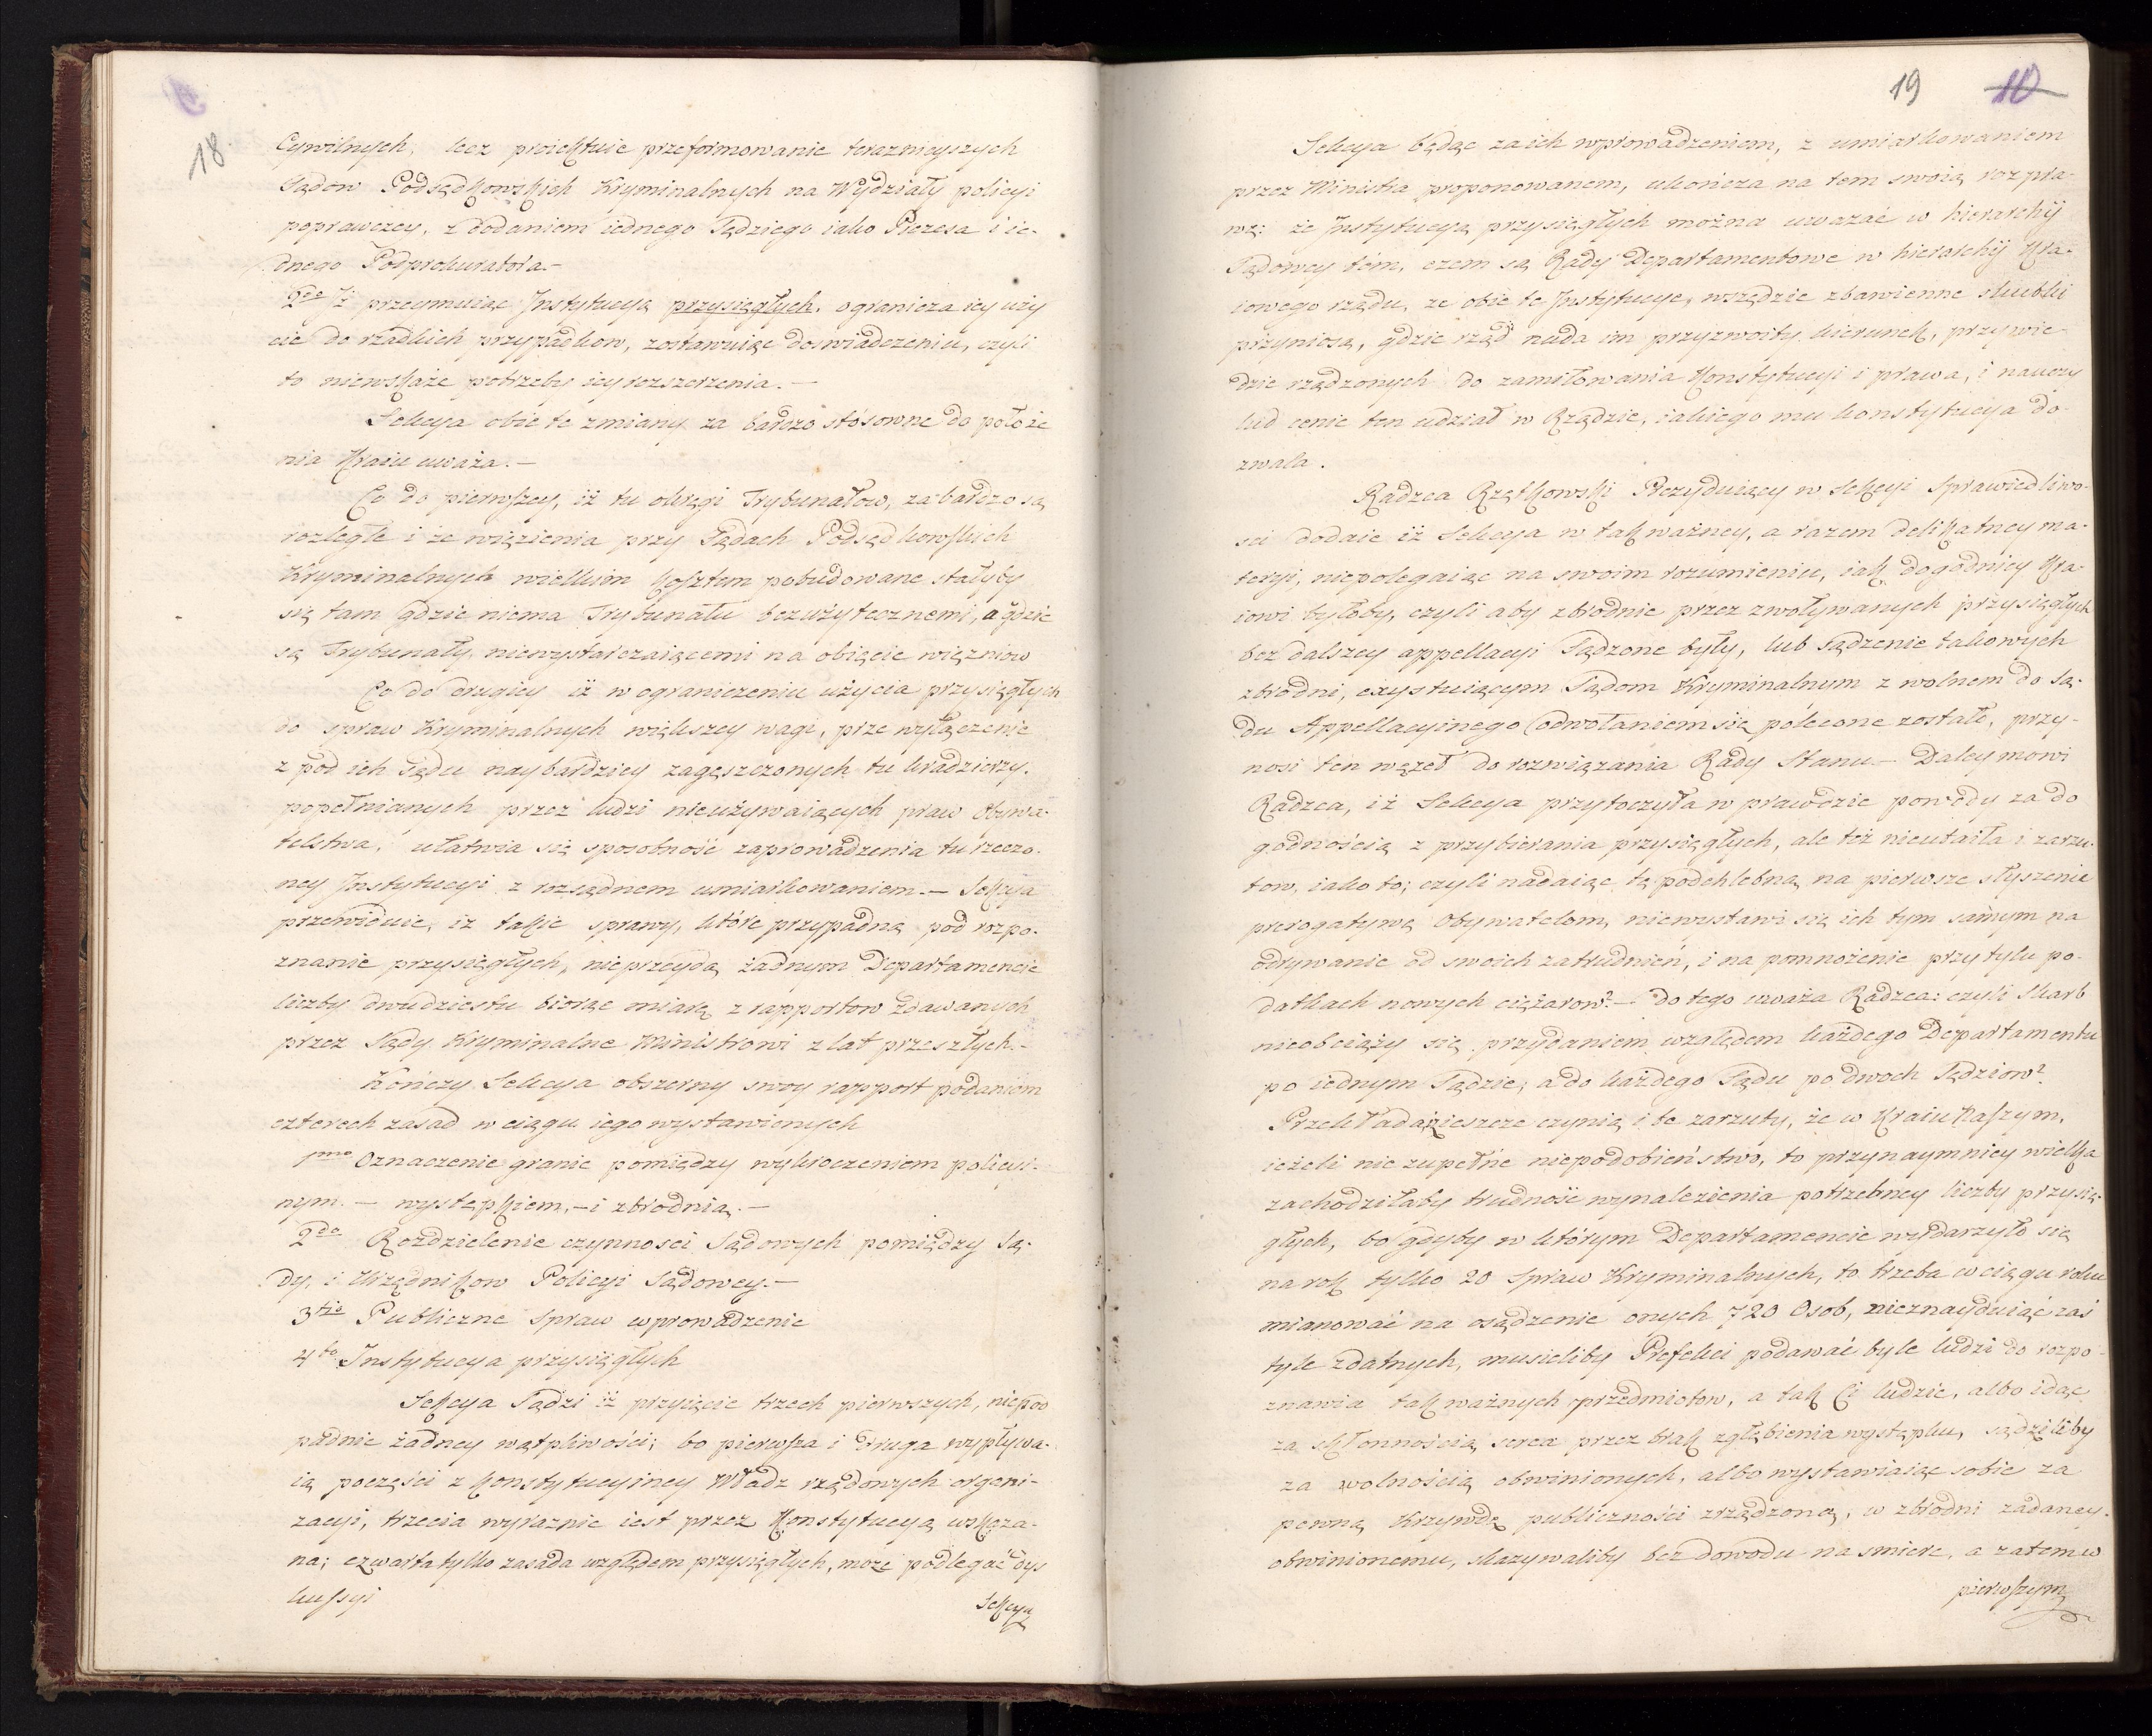 18.
Cywilnych, lecz proiektuie przeformowanie teraznieyszych
Sądow Podsędkowskich Kryminalnych na Wydziały policyi
poprawczey, z dodaniem iednego Sędziego iako Prezesa i ie-
dnego Podprokuratora.-
2do Iż przeymuiąc Instytucyą przysięgłych, ogranicza iey uży
cie do rzadkich przypadkow, zostawuiąc doswiadczeniu, czyli
to niewskaże potrzeby iey rozszerzenia. -
Sekcya obie te zmiany za bardzo stósowne do położe
nia Kraiu uważa. -
Co do pierwszey, iż tu okręgi Trybunałow, za bardzo są
rozległe i że więzienia przy Sądach Podsędkowskich
Kryminalnych wielkim kosztem pobudowane stałyby
się tam gdzie niema Trybunału bezużytecznemi, a gdzie
są Trybunały niewystarczaiącemi na obięcie więzniow
Co do drugiey iż w ograniczeniu użycia przysięgłych
do spraw Kryminalnych większey wagi, prze wyłączenie
z pod ich Sądu naybardziey zagęszczonych tu kradzierzy,
popełnianych przez ludzi nieużywaiących praw Obywa-
telstwa, ułatwia się sposobność zaprowadzenia tu rzeczo-
ney Instytucyi z rozsądnem umiarkowaniem. - Sekcya
przewiduie, iż takie sprawy, które przypadną pod rozpo-
znanie przysięgłych, nieprzeydą żadnym Departamencie
liczby dwudziestu biorąc miarę z rapportow zdawanych
przez Sądy Kryminalne Ministrowi z lat przeszłych. -
Kończy Sekcya obszerny swoy rapport podaniem
czterech zasad w ciągu iego wystawionych
1mo Oznaczenie granic pomiędzy wykroczeniem policyi-
nym. - występkiem, - i zbrodnią. -
2do Rozdzielenie czynnosci Sądowych pomiędzy Są-
dy, i Urzędnikow Policyi Sądowey. -
3tio Publiczne Spraw wprowadzenie
4to Instytucya przysięgłych
Sekcya Sądzi iż przyięcie trzech pierwszych, niepod
padnie żadney wątpliwości; bo pierwsza i druga wypływa-
ią poczęści z Konstytucyiney Władz rządowych organi-
zacyi, trzecia wyraznie iest przez Konstytucyą wskaza-
na; czwarta tylko zasada względem przysięgłych, może podlegać dys
kussyi
Sekcya
19 10
Sekcya będąc za ich wprowadzeniem, z umiarkowaniem
przez Ministra proponowanem, ukończa na tem swoią rozpra-
wę: że Instytucyą przysięgłych można uważać w hierarchij
Sądowey tém, czem są Rady Departamentowe w hierarchij Kra-
iowego rządu, że obie te Instytucye, wszędzie zbawienne skutki
przyniosą, gdzie rząd nada im przyzwoity kierunek, przywie-
dzie rządzonych do zamiłowania Konstytucyi i prawa, i nauczy
lud cenic ten udział w Rządzie, iakiego mu konstytucya do-
zwala.
Radzca Rzętkowski Prezyduiący w Sekcyi Sprawiedliwo-
sci dodaie iż Sekcya w tak ważney, a razem delikatney ma-
teryi, niepolegaiąc na swoim rozumieniu, iak dogodniey Kra-
iowi byłoby, czyli aby zbrodnie przez zwoływanych przysięgłych
bez dalszey appellacyi Sądzone były, lub Sądzenie takowych
zbrodni, exystuiącym Sądom Kryminalnym z wolnem do Są-
du Appellacyinego odwołaniem się polecone zostało, przy-
nosi ten węzeł do rozwiązania Rady Stanu - Daley mowi
Radzca, iż Sekcya przytoczyła w prawdzie powody za do
godnością z przybierania przysięgłych, ale też nieutaiła i zarzu-
tow, iako to; czyli nadaiąc tę podchlebną na pierwsze słyszenie
prerogatywę Obywatelom, niewystawi się ich tym samym na
odrywanie od swoich zatrudnień, i na pomnożenie przy tylu po-
datkach nowych ciężarow? - do tego uważa Radzca: czyli Skarb
nieobciąży się przydaniem względem każdego Departamentu
po iednym Sądzie, a do każdego Sądu po dwoch Sędziow?
Przekłada ieszcze czynią i te zarzuty, że w Kraiu Naszym,
ieżeli nie zupełne niepodobieństwo, to przynaymniey wielka
zachodziłaby trudność wynalezienia potrzebney liczby przysię-
głych, bo gdyby w którym Departamencie wydarzyło się
na rok tylko 20 Spraw Kryminalnych, to trzeba w ciągu roku
mianować na osądzenie onych 720 Osob, nieznayduiąc zaś
tyle zdatnych, musieliby Prefekci podawać byle ludzi do rozpo-
znawia tak ważnych przedmiotow, a tak Ci ludzie, albo idąc
za skłonnością serca przez brak zgłębienia występku, sądziliby
za wolnością obwinionych, albo wystawiaiąc sobie za
pewną krzywdę publiczności zrządzoną, w zbrodni zadaney
obwinionemu, skazywaliby bez dowodu na smierc, a zatem w
pierwszym